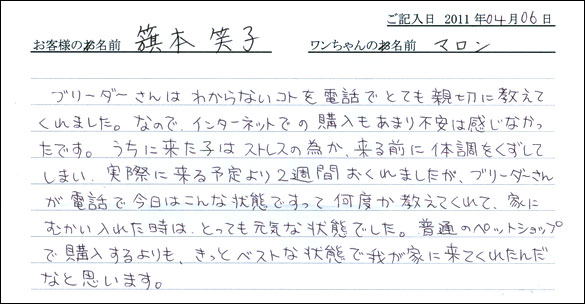 ご記入日 2011年04月06日
お客様のお名前 簱本 笑子 ワンちゃんのお名前 マロン
ブリーダーさんは わからないコトを 電話でとても 親切に教えて
くれました。なので、インターネットでの 購入もあまり不安は感じなかっ
たです。 うちに来た子は ストレスの為か、来る前に 体調をくずして
しまい、実際に来る予定より 2週間 おくれましたが、ブリーダーさん
が 電話で 今日はこんな状態ですって 何度か 教えてくれて、家に
むかい入れた時は、とっても元気な状態でした。 普通のペットショップ
で購入するよりも、きっとベストな状態で我が家に来てくれたんだ
なと思います。